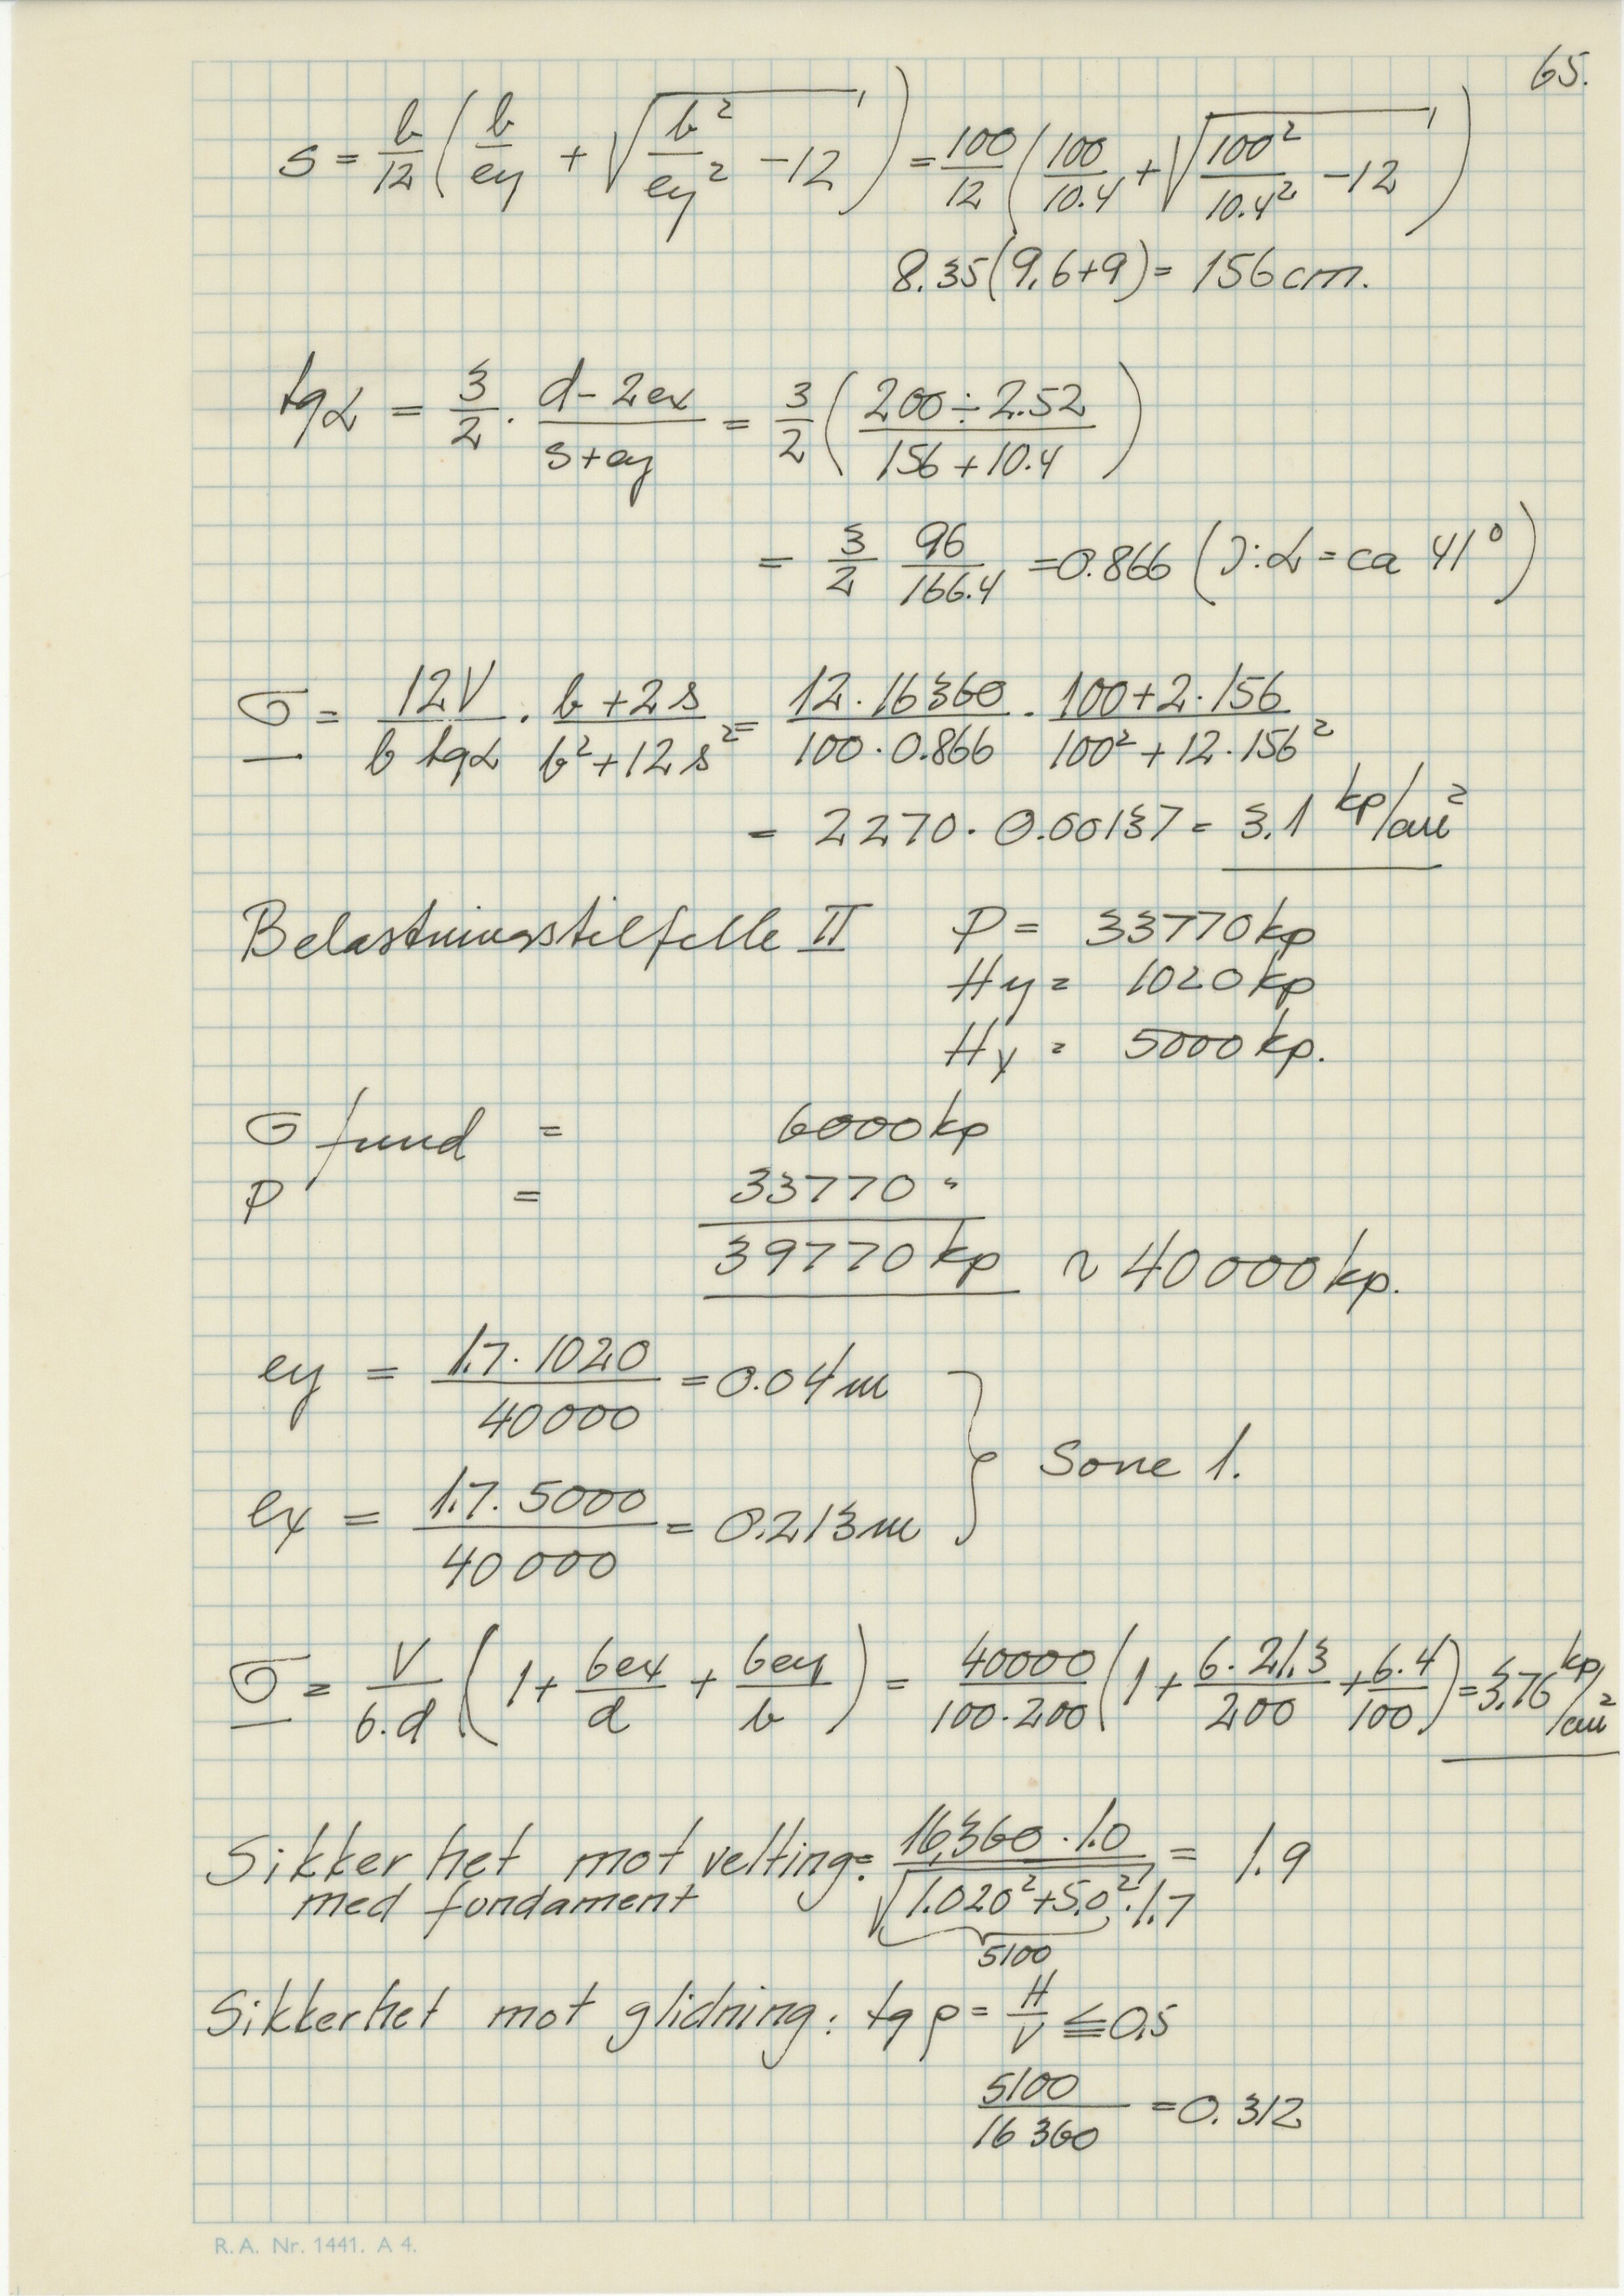 65.
s = b/12 ( b/ey + √(b²/ey² -12) ) = 100/12 ( 100/10.4 + √(100²/10.4² -12) )
8.35(9,6+9) = 156 cm.
tgα = 3/2 · (d - 2ex)/(s+ey) = 3/2 ( (200 ÷ 2.52)/(156 + 10.4) )
= 3/2 96/166.4 = 0.866 (ɔ: α = ca 41°)
σ = 12V/(b tgα) · (b + 2s)/(b² + 12s²) = 12 · 16360/(100 · 0.866) · (100 + 2 · 156)/(100² + 12 · 156²)
= 2270 · 0.00137 = 3.1 kp/cm²
Belastningstilfelle II P = 33770 kp
Hy = 1020 kp
Hx = 5000 kp.
G fund = 6000 kp
P = 33770 "
39770 kp ~ 40000 kp.
ey = 1.7 · 1020/40000 = 0.04 m
Sone 1.
ex = 1.7 · 5000/40000 = 0.213 m
σ = V/(b·d) ( 1 + 6ex/d + 6ey/b ) = 40000/(100·200) ( 1 + 6·21.3/200 + 6·4/100 ) = 3,76 kp/cm²
Sikkerhet mot velting: 16,360 · 1.0/(√(1.020² + 5.0²) · 1.7) = 1.9
med fondament
5100
Sikkerhet mot glidning: tg ρ = H/V ≦ 0,5
5100/16360 = 0.312
R.A. Nr. 1441. A 4.